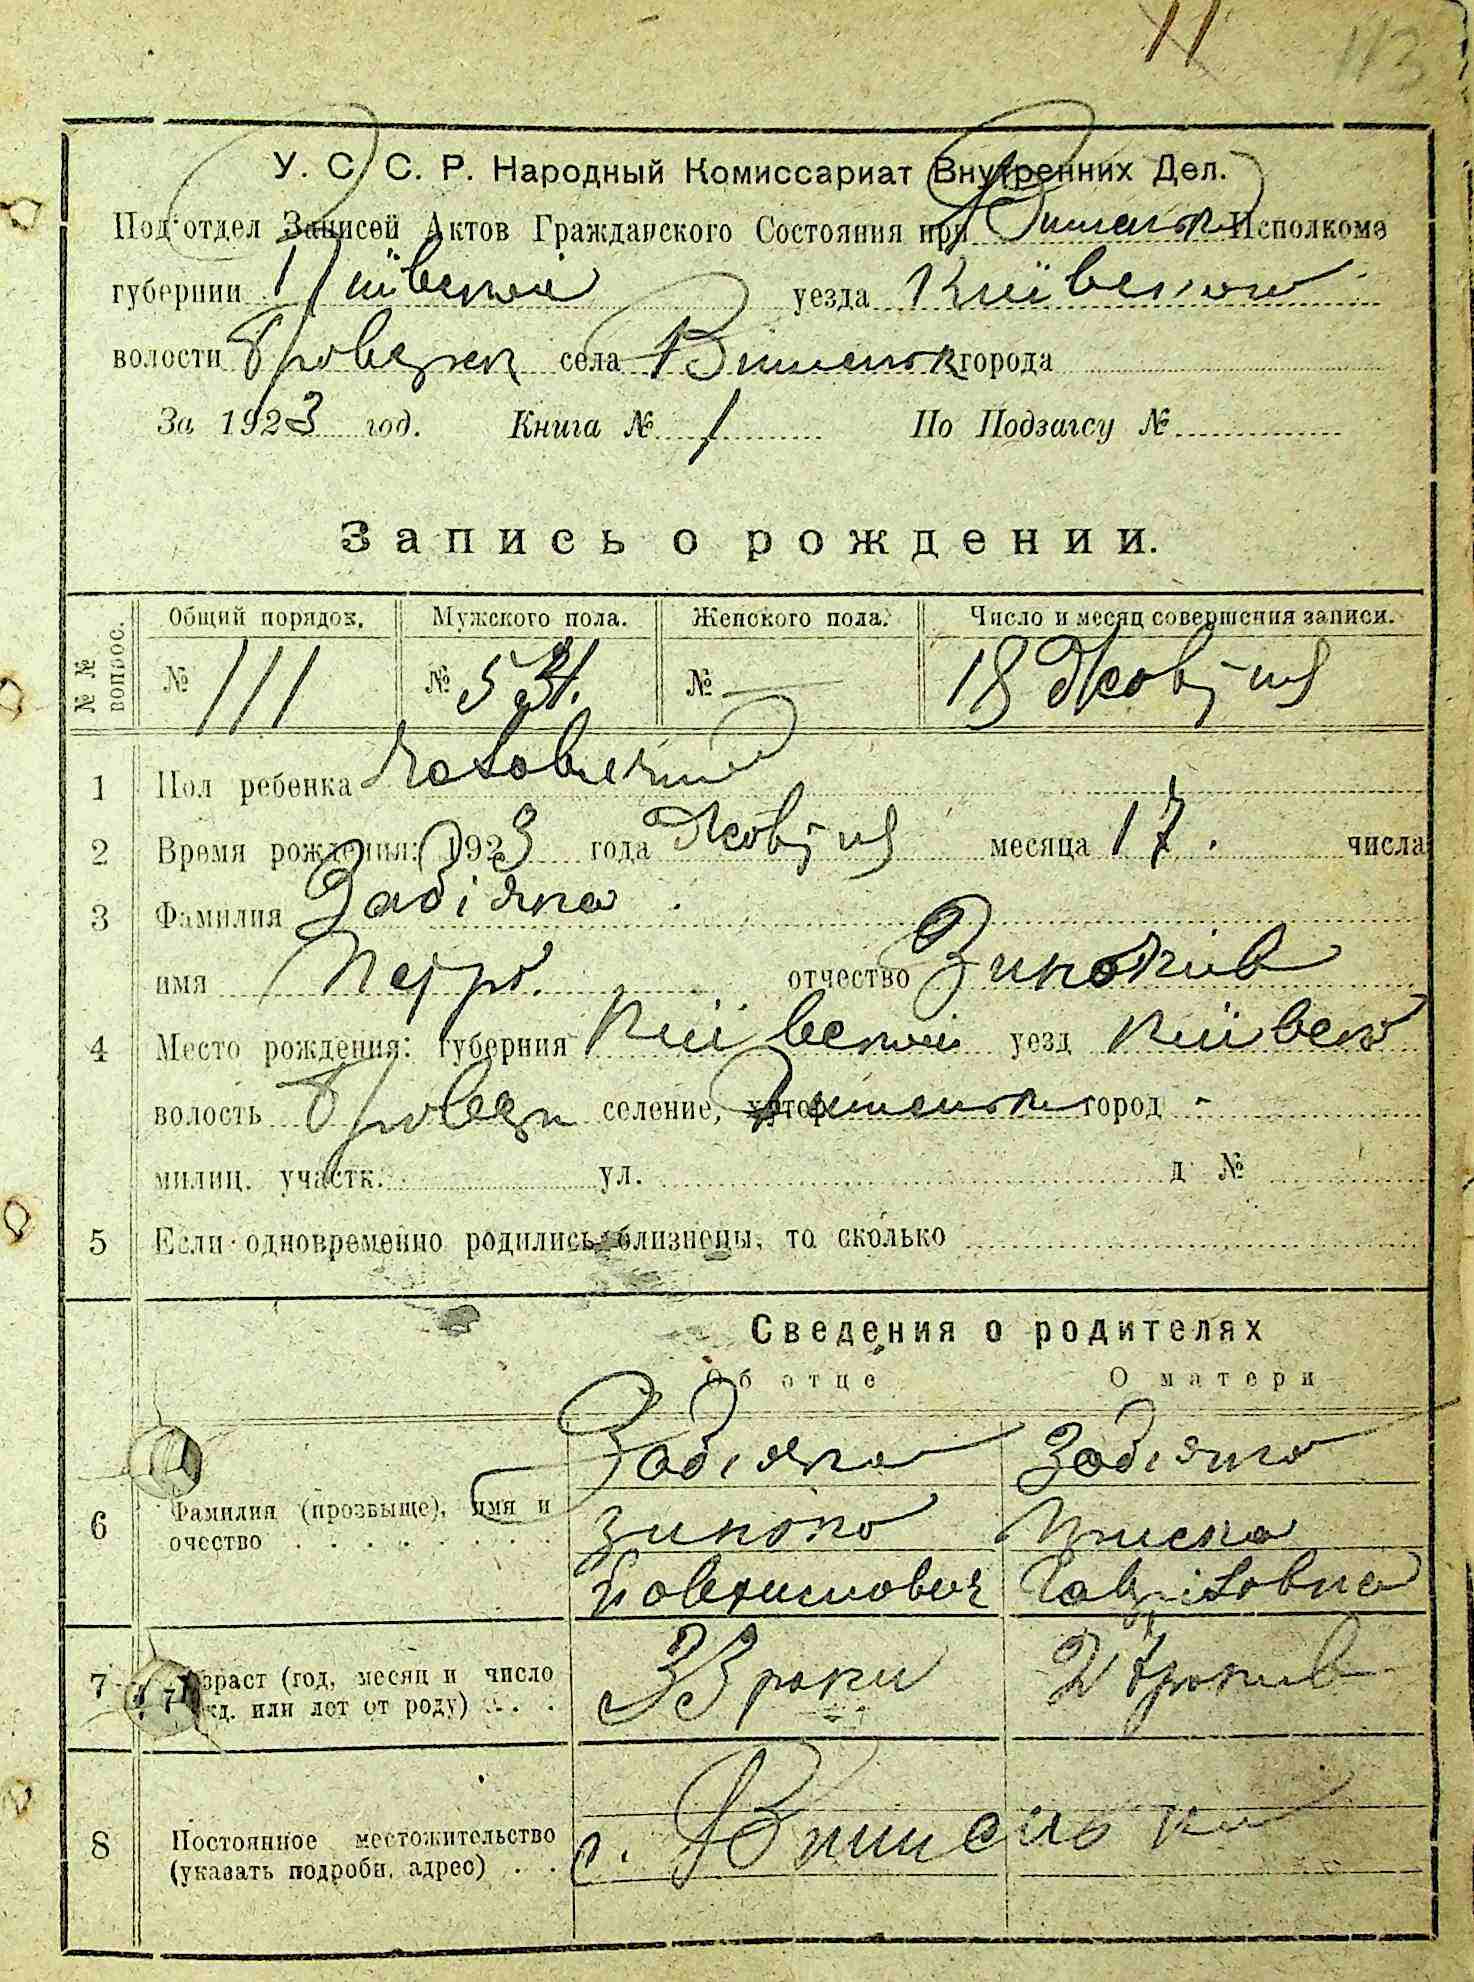 11 113
У. С. С. Р. Народный Комиссариат Внутренних Дел.
Подотдел Записей Актов Гражданского Состояния при Вишеньк Исполкоме
губернии Київської уезда Київського
волости Броварск села Вишеньк города
За 1923 год. Книга № 1 По Подзагсу №
Запись о рождении.
№ № вопрос. Общий порядок. Мужского пола. Женского пола. Число и месяц совершения записи.
№ 111 № 531. № — 18 Жовтня
1 Пол ребенка Чоловичий
2 Время рождения: 1923 года Жовтня месяца 17. числа
3 Фамилия Забіяка.
имя Петро. отчество Зинокив
4 Место рождения: губерния Київської уезд Київсько
волость Бровар селение, хутор Вишеньки город -
милиц. участк. ул. д. №
5 Если одновременно родились близнецы, то сколько
Сведения о родителях
Об отце О матери
Забіяка Забіяка
6 Фамилия (прозвыще), имя и очество Зинько Приска
Гавриловна
7 Возраст (год, месяц и число рожд. или лет от роду) 33 роки 27 рокив
8 Постоянное местожительство (указать подробн. адрес) с. Вишеньки